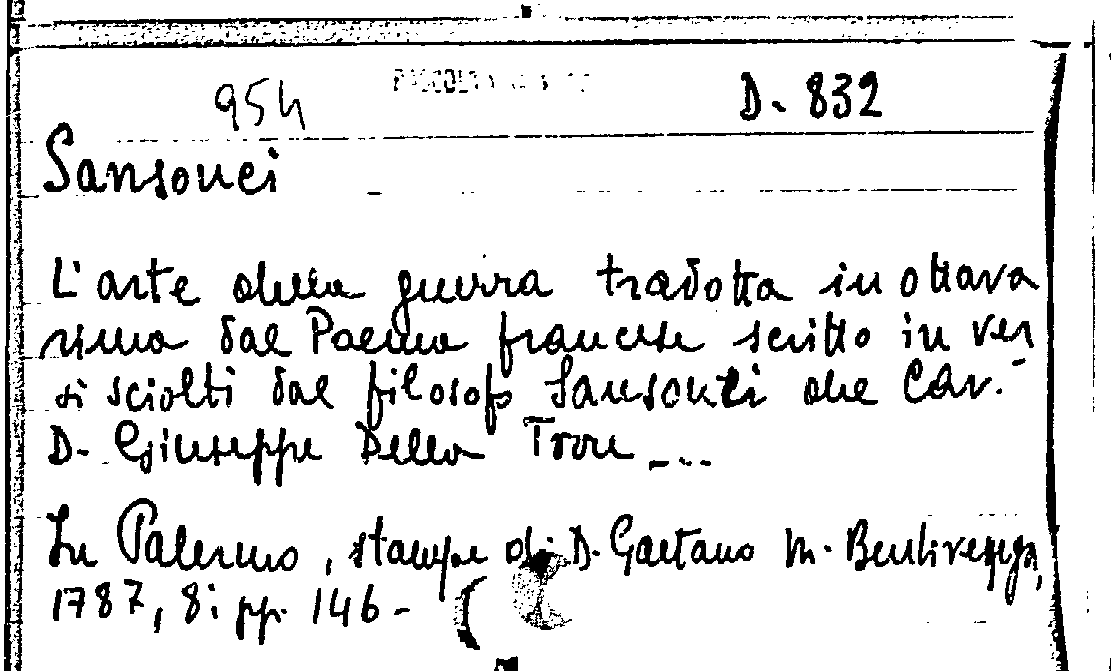 954 D. 832
Sansouci
L'arte della guerra tradotta in ottava
rima dal Poema francese scritto in ver
si sciolti dal filosofo Sansouci del Cav.
D. Giuseppe Della Torre ...
In Palermo, stampe di D. Gaetano M. Bentivegna,
1787, 8: pp. 146-